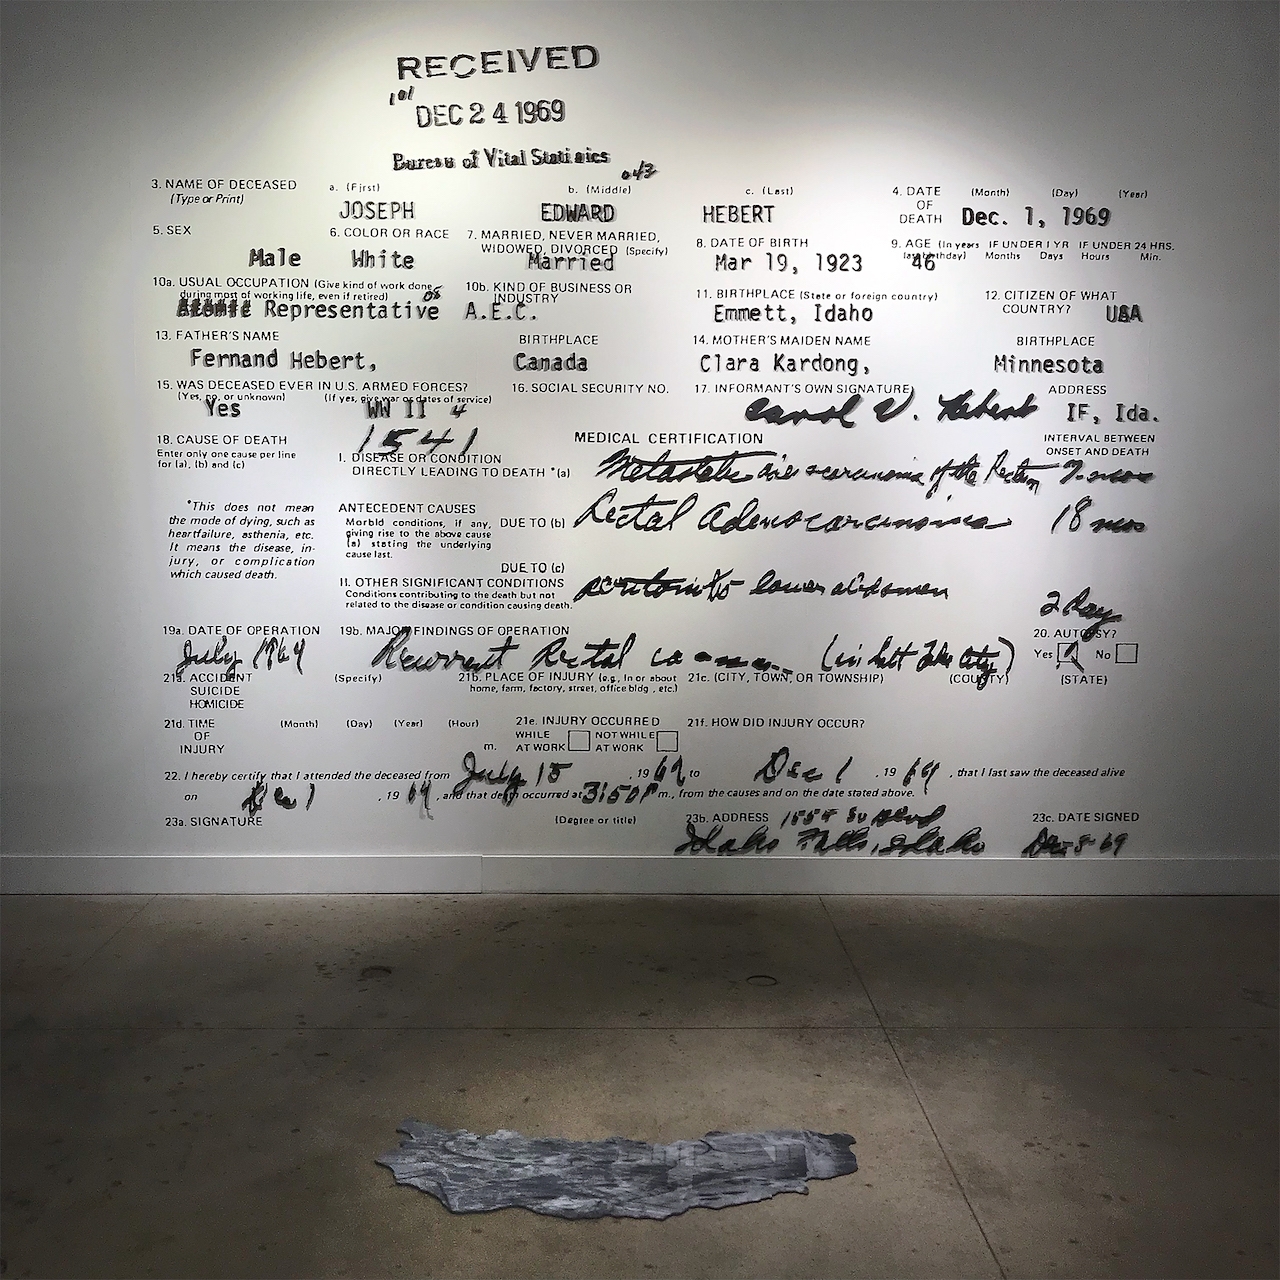 RECEIVED
101
DEC 24 1969
Bureau of Vital Statistics
043
3. NAME OF DECEASED a. (First) b. (Middle) c. (Last) 4. DATE (Month) (Day) (Year)
(Type or Print) OF
JOSEPH EDWARD HEBERT DEATH Dec. 1, 1969
5. SEX 6. COLOR OR RACE 7. MARRIED, NEVER MARRIED, 8. DATE OF BIRTH 9. AGE (In years IF UNDER 1 YR IF UNDER 24 HRS.
WIDOWED, DIVORCED (Specify) last birthday) Months Days Hours Min.
Male White Married Mar 19, 1923 46
10a. USUAL OCCUPATION (Give kind of work done 10b. KIND OF BUSINESS OR 11. BIRTHPLACE (State or foreign country) 12. CITIZEN OF WHAT
during most of working life, even if retired) INDUSTRY COUNTRY?
Representative A.E.C. Emmett, Idaho USA
13. FATHER'S NAME BIRTHPLACE 14. MOTHER'S MAIDEN NAME BIRTHPLACE
Fernand Hebert, Canada Clara Kardong, Minnesota
15. WAS DECEASED EVER IN U.S. ARMED FORCES? 16. SOCIAL SECURITY NO. 17. INFORMANT'S OWN SIGNATURE ADDRESS
(Yes, no, or unknown) (If yes, give war or dates of service)
Yes WW II 4 Carol V. Hebert IF, Ida.
18. CAUSE OF DEATH 1541 MEDICAL CERTIFICATION INTERVAL BETWEEN
Enter only one cause per line ONSET AND DEATH
for (a), (b) and (c) I. DISEASE OR CONDITION
DIRECTLY LEADING TO DEATH *(a) of the Rectum
*This does not mean ANTECEDENT CAUSES
the mode of dying, such as Morbid conditions, if any, DUE TO (b) Rectal Adenocarcinoma 18 mos
heartfailure, asthenia, etc. giving rise to the above cause
It means the disease, in- (a) stating the underlying
jury, or complication cause last.
which caused death. DUE TO (c)
II. OTHER SIGNIFICANT CONDITIONS lower abdomen
Conditions contributing to the death but not
related to the disease or condition causing death. 2 Day
19a. DATE OF OPERATION 19b. MAJOR FINDINGS OF OPERATION 20. AUTOPSY?
July 1969 Recurrent Rectal (in Salt Lake City) Yes No
21a. ACCIDENT (Specify) 21b. PLACE OF INJURY (e.g., in or about 21c. (CITY, TOWN, OR TOWNSHIP) (COUNTY) (STATE)
SUICIDE home, farm, factory, street, office bldg., etc.)
HOMICIDE
21d. TIME (Month) (Day) (Year) (Hour) 21e. INJURY OCCURRED 21f. HOW DID INJURY OCCUR?
OF WHILE NOT WHILE
INJURY m. AT WORK AT WORK
22. I hereby certify that I attended the deceased from July 15, 1969 to Dec 1, 1969, that I last saw the deceased alive
on Dec 1, 1969, and that death occurred at 3:50P m., from the causes and on the date stated above.
23a. SIGNATURE (Degree or title) 23b. ADDRESS 23c. DATE SIGNED
Idaho Falls, Idaho Dec-8-69